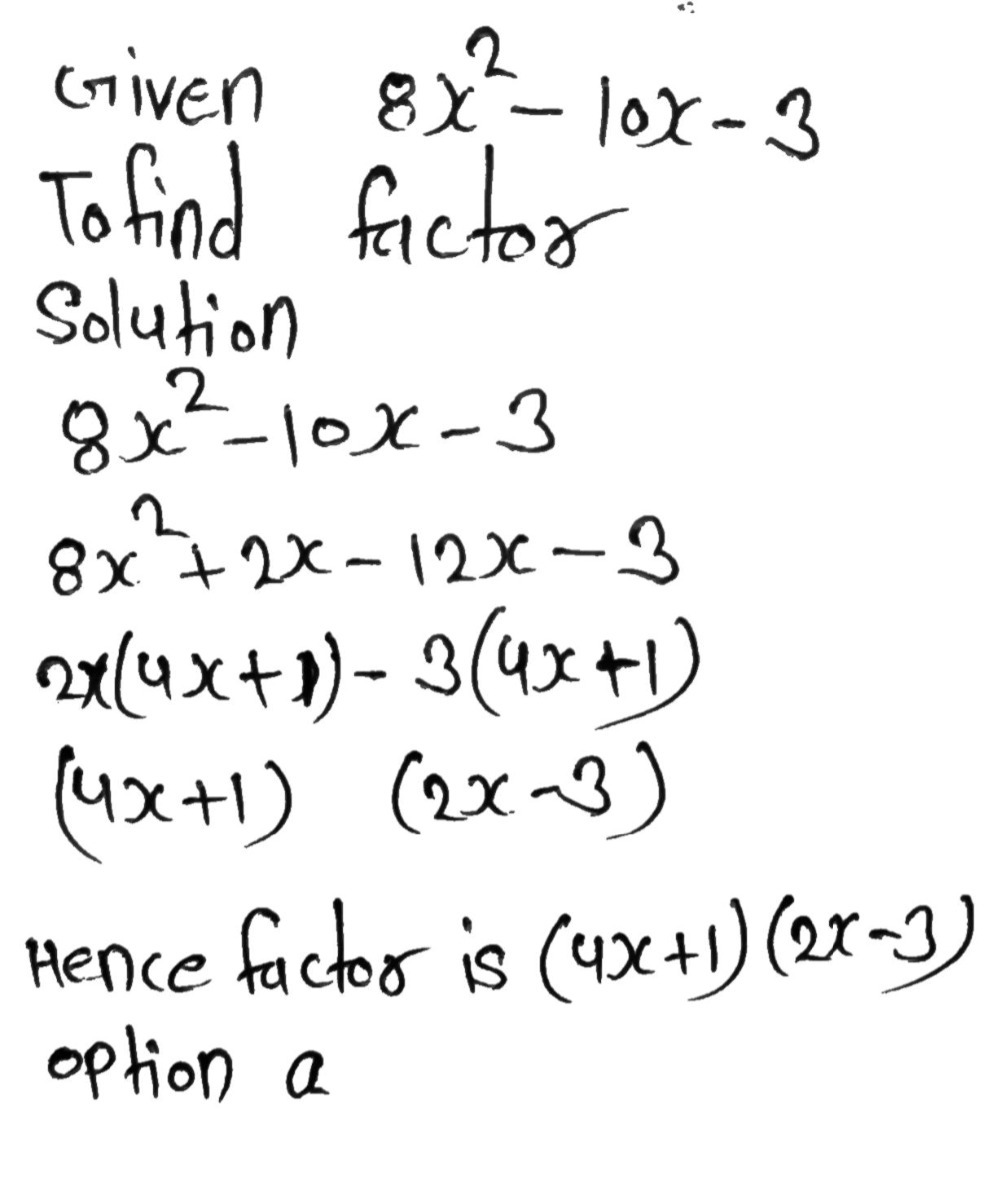 Given 8x² - 10x - 3
To find factor
Solution
8x² - 10x - 3
8x² + 2x - 12x - 3
2x(4x+1) - 3(4x+1)
(4x+1) (2x-3)
Hence factor is (4x+1)(2x-3)
option a